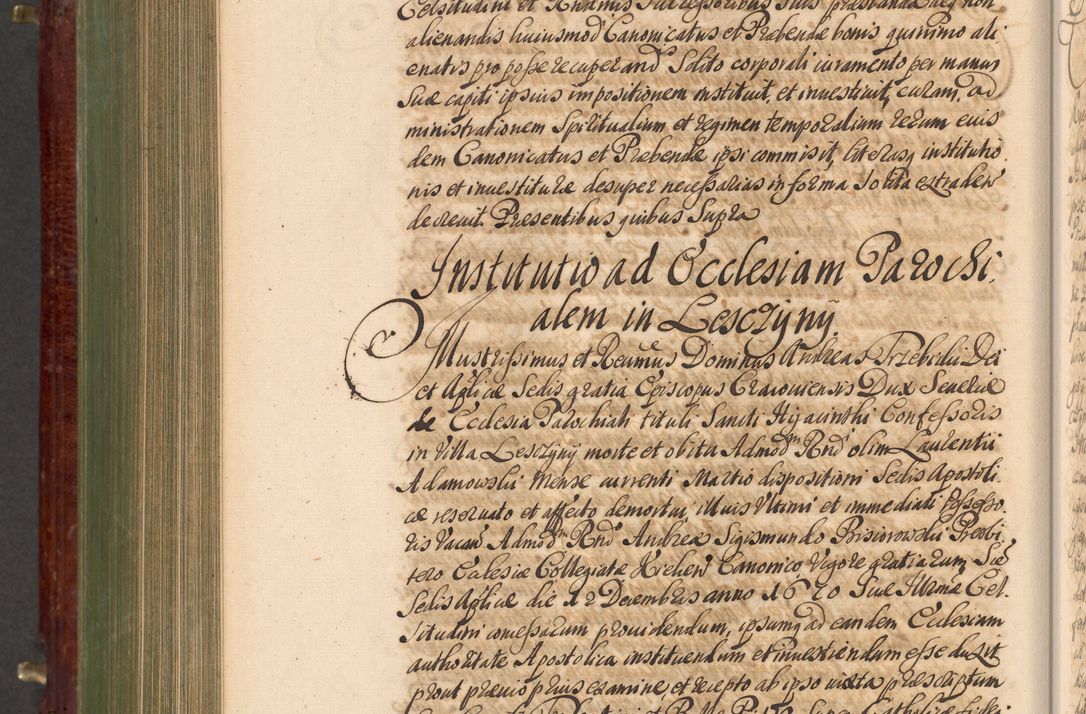 Celsitudini et Rndmis Successoribus suis praestanda deq non
alienandis huiusmodi Canonicatus et Praebendae bonis quinimo ali
enatis pro posse recuperand Solito corporali iuramento per manus
Suae capiti ipsius impositionem instituit, et investivit, curam, ad
ministrationem Spiritualium et regimen temporalium rerum eius
dem Canonicatus et Praebendae ipsi commisit, literasq institutio
nis et investiturae desuper necessarias in forma solita extraden
decrevit. Praesentibus quibus Supra
Institutio ad Ecclesiam Parochi
alem in Lesczyny
Illustrissimus et Reverendissimus Dominus Andreas Trzebicki Dei
et Aplicae Sedis gratia Episcopus Cracoviensis Dux Severiae
de Ecclesia Parochiali tituli Sancti Hyacinthi Confessoris
in Villa Lesczyny morte et obitu Admodm Rnd olim Laurentii
Adamowski Mense currenti Martio dispositioni Sedis Apostoli
cae reservato et affecto demortui illius Ultimi et immediati possesso
ris vacan Admodm Rnd Andreae Sigismundo Prisiorowski Presbi
tero Eclesiae Collegiatae Kielcen Canonico Vigore gratiarum Suae
Sedis Aplicae die 12 Decembris anno 1670 Suae Illrmae Cel
situdini concessarum providendum, ipsumq ad eandem Ecclesiam
authoritate Apostolica instituendum et investiendum esse duxit
prout praevio prius examine, et recepto ab ipso iuxta praescriptum